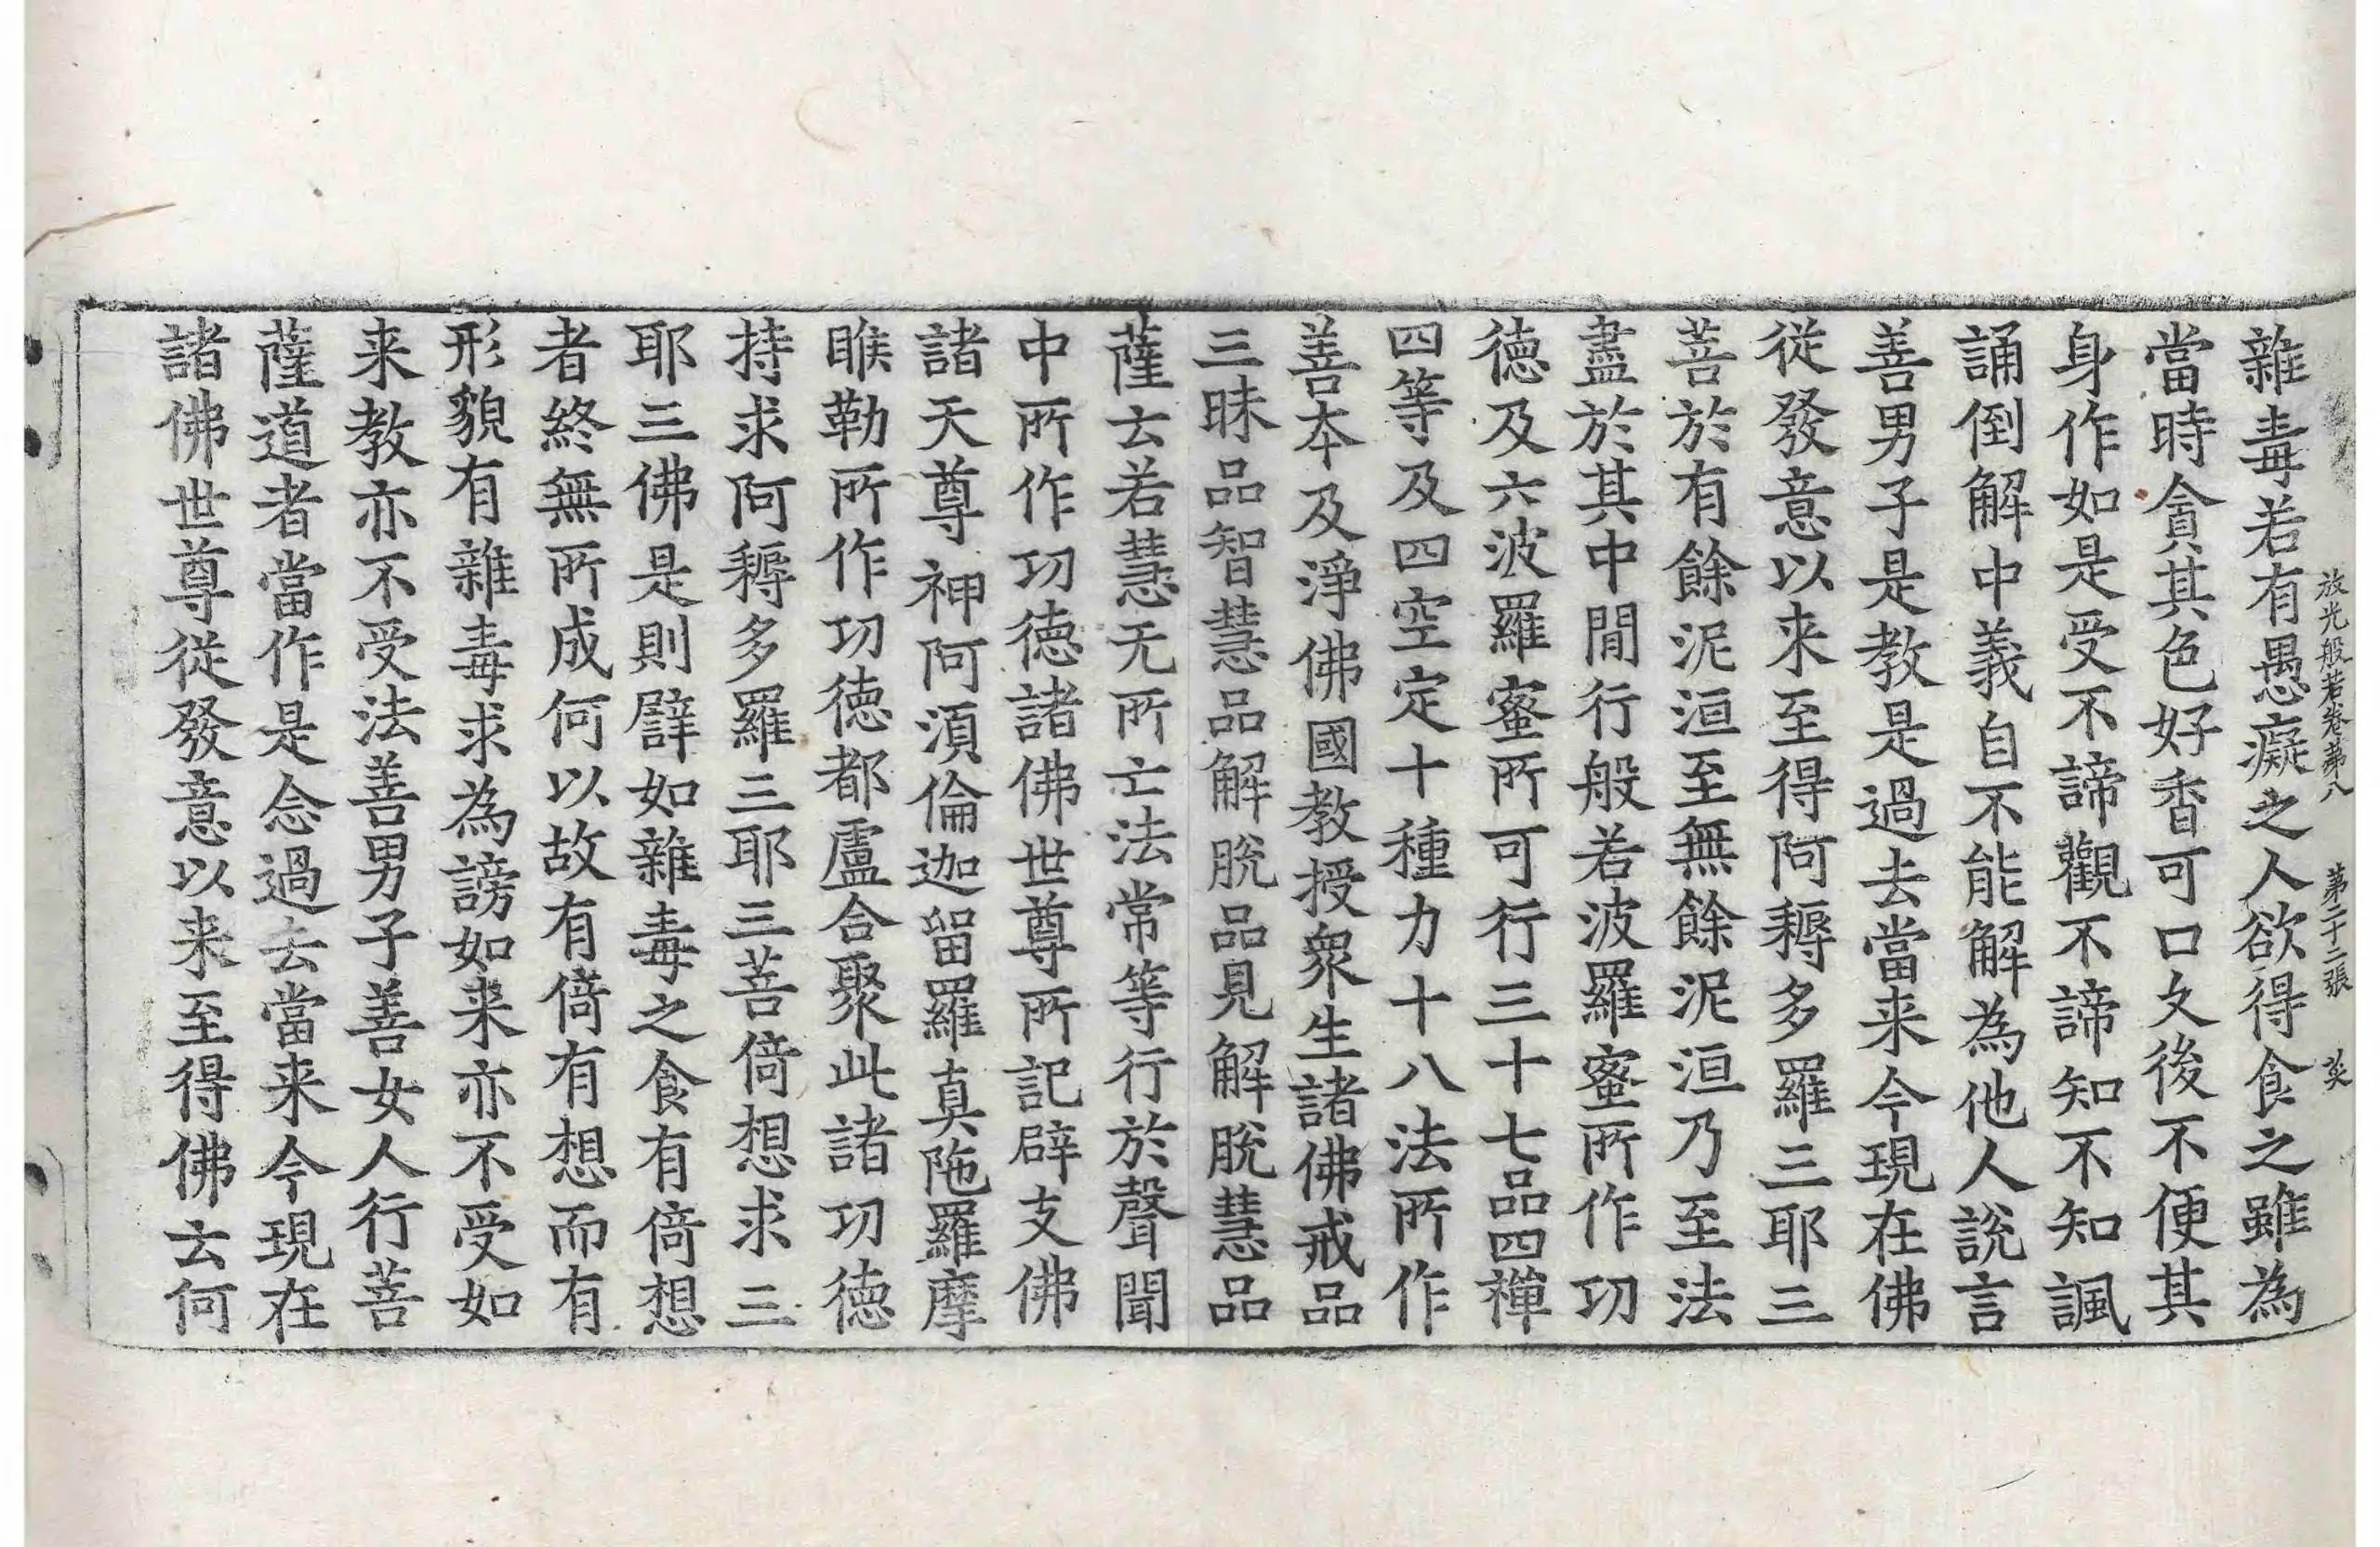 放光般若卷第八 第二十二張 芥
雜毒若有愚癡之人欲得食之雖為
當時貪其色好香可口久後不便其
身作如是受不諦觀不諦知不知諷
誦倒解中義自不能解為他人說言
善男子是教是過去當来今現在佛
從發意以来至得阿耨多羅三耶三
菩於有餘泥洹至無餘泥洹乃至法
盡於其中閒行般若波羅蜜所作功
德及六波羅蜜所可行三十七品四禪
四等及四空定十種力十八法所作
善本及淨佛國教授眾生諸佛戒品
三昧品智慧品解脫品見解脫慧品
薩云若慧无所亡法常等行於聲聞
中所作功德諸佛世尊所記辟支佛
諸天尊神阿須倫迦留羅真陁羅摩
睺勒所作功德都盧合聚此諸功德
持求阿耨多羅三耶三菩倚想求三
耶三佛是則譬如雜毒之食有倚想
者終無所成何以故有倚有想而有
形貌有雜毒求為謗如来亦不受如
来教亦不受法善男子善女人行菩
薩道者當作是念過去當来今現在
諸佛世尊從發意以来至得佛云何